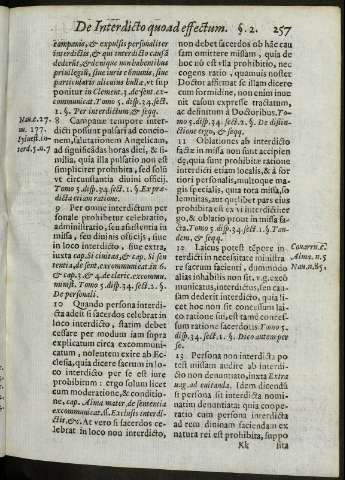 De Interdicto quoad effectum. §. 2. 257
campanis, & expulsis personaliter
interdictis, & qui interdicto causã
dederũt, & denique non habentibus
privilegiũ, sive iuris cõmunis, sive
particularis alicuius bullæ, vt sup
ponitur in Clement. 3. de sent. ex-
communicat. Tomo 5. disp. 34. sect.
1. §. Per interdictum, & seqq.
Nau. c. 27.
n. 177.
8 Campanæ tempore inter-
dicti possunt pulsari ad concio-
nem, salutationem Angelicam,
ad significãdas horas diei, & si-
milia, quia illa pulsatio non est
simpliciter prohibita, sed solũ
vt circunstantia divini officij.
Tomo 5. disp. 34. sect. 1. §. Ex præ-
dicta etiam ratione.
9 Per omne interdictum per
sonale prohibetur celebratio,
administratio, seu assistentia in
missa, seu divinis officijs, sive
in loco interdicto, sive extra,
iuxta cap. Si civitas, & cap. Si sen
tentia, de sent. excommunicat. in 6.
& cap. 3. & 4. de cleric. excommu.
ministr. Tomo 5. disp. 34. sect. 2. §.
De personali.
10 Quando persona interdi-
cta adest si sacerdos celebrat in
loco interdicto, statim debet
cessare per modum iam supra
explicatum circa excommuni-
catum, nolentem exire ab Ec-
clesia, quia dicere sacrum in lo-
co interdicto per se est iure
prohibitum: ergo solum licet
cum moderatione, & conditio-
ne, cap. Alma mater, de sententia
excommunicat. si. Exclusis interdi-
ctis, &c. At vero si sacerdos ce-
lebrat in loco non interdicto,
non debet sacerdos ob hãc cau
sam omittere missam, quia de
hoc nõ est vlla prohibitio, nec
cogens ratio, quamuis noster
Doctor affirmat se illam dicere
cum formidine, non enim inue
nit casum expresse tractatum,
ac definitum à Doctoribus. To-
mo 5. disp. 34. sect. 2. §. De distin-
ctione ergo, & seqq.
11 Oblationes ab interdicto
factæ in missa non sunt accipien
dæ, quia sunt prohibitæ ratione
interdicti etiam localis, & à for
tiori personalis, multoque ma-
gis specialis, quia tota missa, so
lemnitas, aut quælibet pars eius
prohibita est ex vi interdicti: er
go, & oblatio prout in missa fa-
cta. Tomo 5. disp. 34. sect. 1. §. Tan-
dem, & seqq.
12 Laicus potest tẽpore in-
terdicti in necessitate ministra
re sacrum facienti, dummodo
alias inhabilis non sit, v.g. excõ
municatus, interdictus, seu cau-
sam dederit interdicto, quia li-
cet hoc non sit concessum lai-
co ratione sui, est tamẽ conces-
sum ratione sacerdotis. Tomo 5.
disp. 34. sect. 1. §. Dico autem per
se.
13 Persona non interdicta po
test missam audire ab interdi-
cto non denuntiato, iuxta Extra
uag. ad euitanda. Idem dicendũ
si persona sit interdicta nomi-
natim denuntiata: quia coope-
ratio cum persona interdicta
ad rem divinam faciendam ex
natura rei est prohibita, suppo
Kk sita